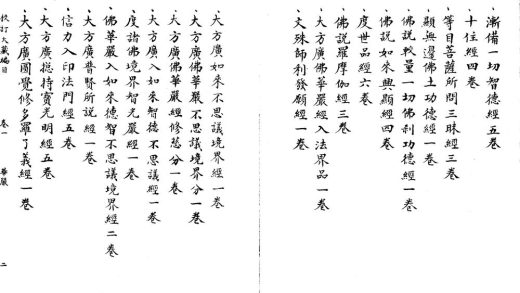 、漸備一切智德經五卷
十住經四卷
、等目菩薩所問三昧經三卷
、顯無邊佛土功德經一卷
、佛說較量一切佛剎功德經一卷
佛說如來興顯經四卷
度世品經六卷
佛說羅摩伽經三卷
、大方廣佛華嚴經入法界品一卷
、文殊師利發願經一卷
、大方廣如來不思議境界經一卷
、大方廣佛華嚴經不思議境界分一卷
、大方廣佛華嚴經修慈分一卷
、大方廣入如來智德不思議經一卷
度諸佛境界智光嚴經一卷
、佛華嚴入如來德智不思議境界經二卷
、大方廣普賢所說經一卷
、信力入印法門經五卷
、大方廣摠持寶光明經五卷
、大方廣圓覺修多羅了義經一卷
校訂大藏編目 卷一 華嚴 二